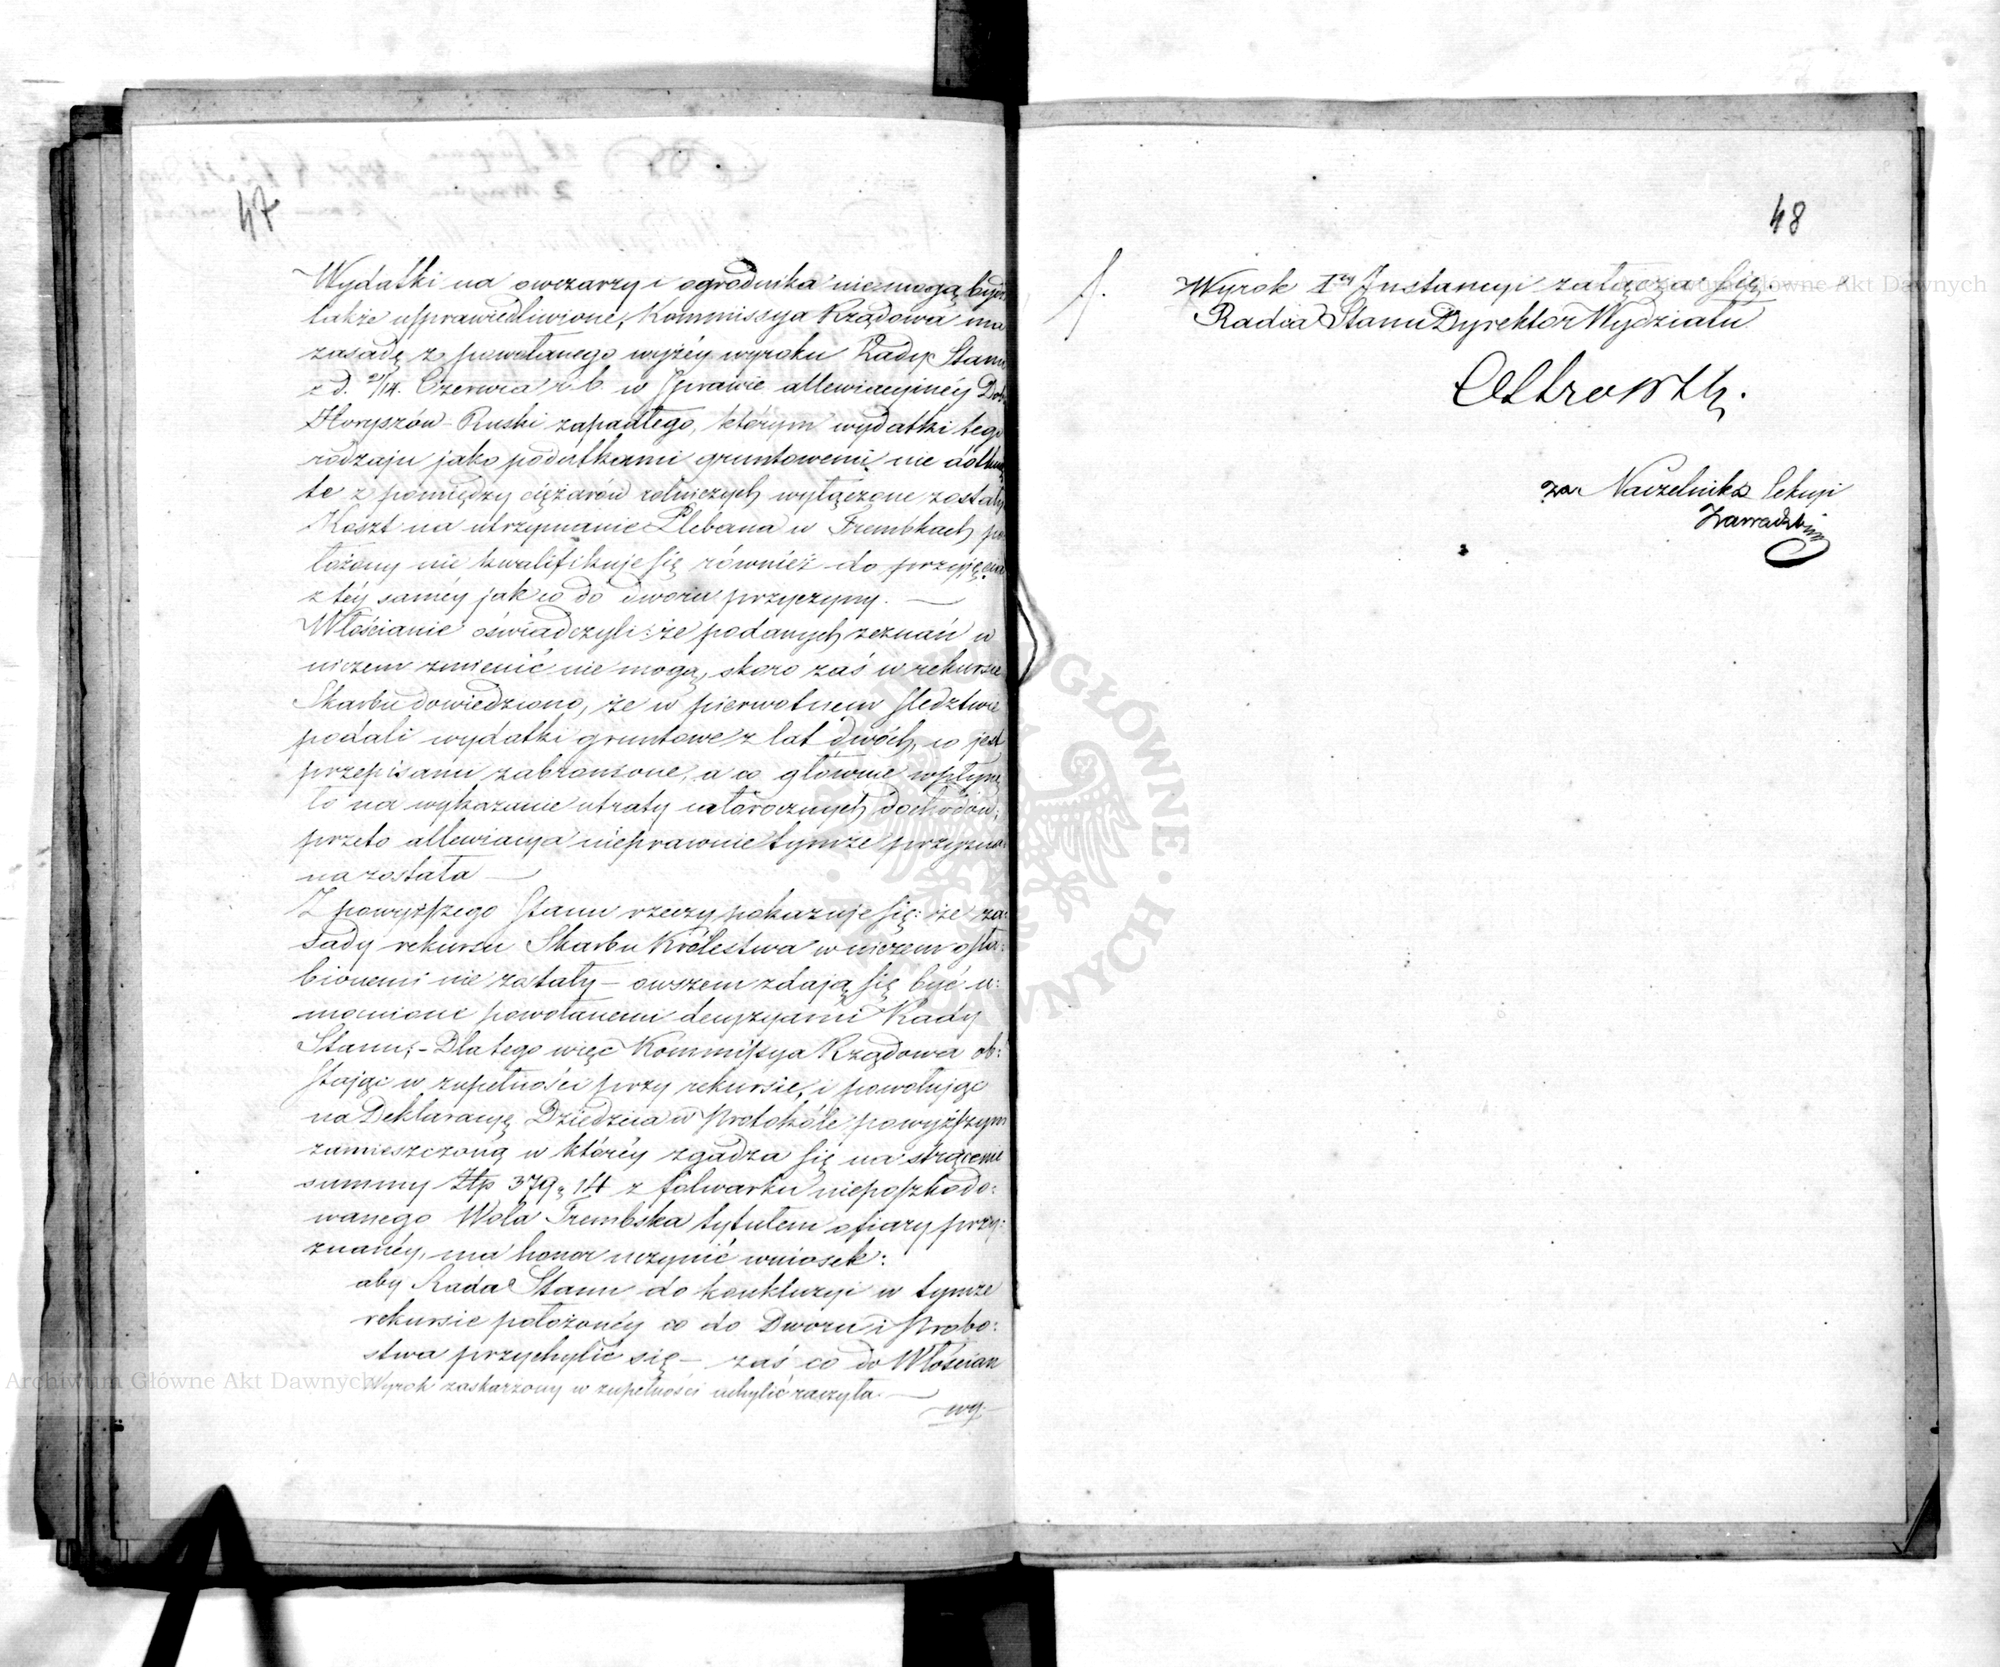 47
Wydatki na owczarzy i ogrodnika nie mogą bydź
także usprawiedliwione, Kommissya Rządowa ma
zasadę z powołanego wyżéy wyroku Rady Stanu
z d. 2/14. Czerwca r. b. w Sprawie allewiacyjnéy Dóbr
Horyszów-Ruski zapadłego, którym wydatki tego
rodzaju jako podatkami gruntowemi nie
te z pomiędzy ciężarów rolniczych wyłączone zostały
Koszt na utrzymanie Plebana w Trembkach po
łożony nie kwalifikuje się również do przyjęcia
z téy saméy jak co do dworu przyczyny. —
Włościanie oświadczyli: że podanych zeznań w
niczem zmienić nie mogą, skoro zaś w rekursie
Skarbu dowiedziono, że w pierwotnem śledztwie
podali wydatki gruntowe z lat dwóch, co jest
przepisami zabronione, a co głównie wpłynę
ło na wykazanie utraty całorocznych dochodów;
przeto allewiacya nieprawnie tymże przyzna
na została —
Z powyższego Stanu rzeczy pokazuje się: że za:
sady rekursu Skarbu Królestwa w niczem osła:
bionemi nie zostały — owszem zdają się być u:
mocnione powołanemi decyzyami Rady
Stanu; - Dlatego więc Kommissya Rządowa ob:
stając w zupełności przy rekursie, i powołując
na Deklaracyę Dziedzica w Protokóle powyższym
zamieszczoną w któréy zgadza się na strącenie
summy Złp 379 „ 14 z folwarku nieposzkodo:
wanego Wola Trembska tytułem ofiary przy:
znanéy, ma honor uczynić wniosek:
aby Rada Stanu do konkluzyi w tymże
rekursie położonéy co do Dworu i Probo:
stwa przychylić się — zaś co do Włościan
Wyrok zaskarżony w zupełności uchylić raczyła. —
wy.
48
f.
Wyrok 1ey Instancyi załącza się
Radca Stanu Dyrektor Wydziału
Ostrowski.
za Naczelnika Sekcyi
Zawadzki
ARCHIWUM GŁÓWNE AKT DAWNYCH
Archiwum Główne Akt Dawnych
Archiwum Główne Akt Dawnych